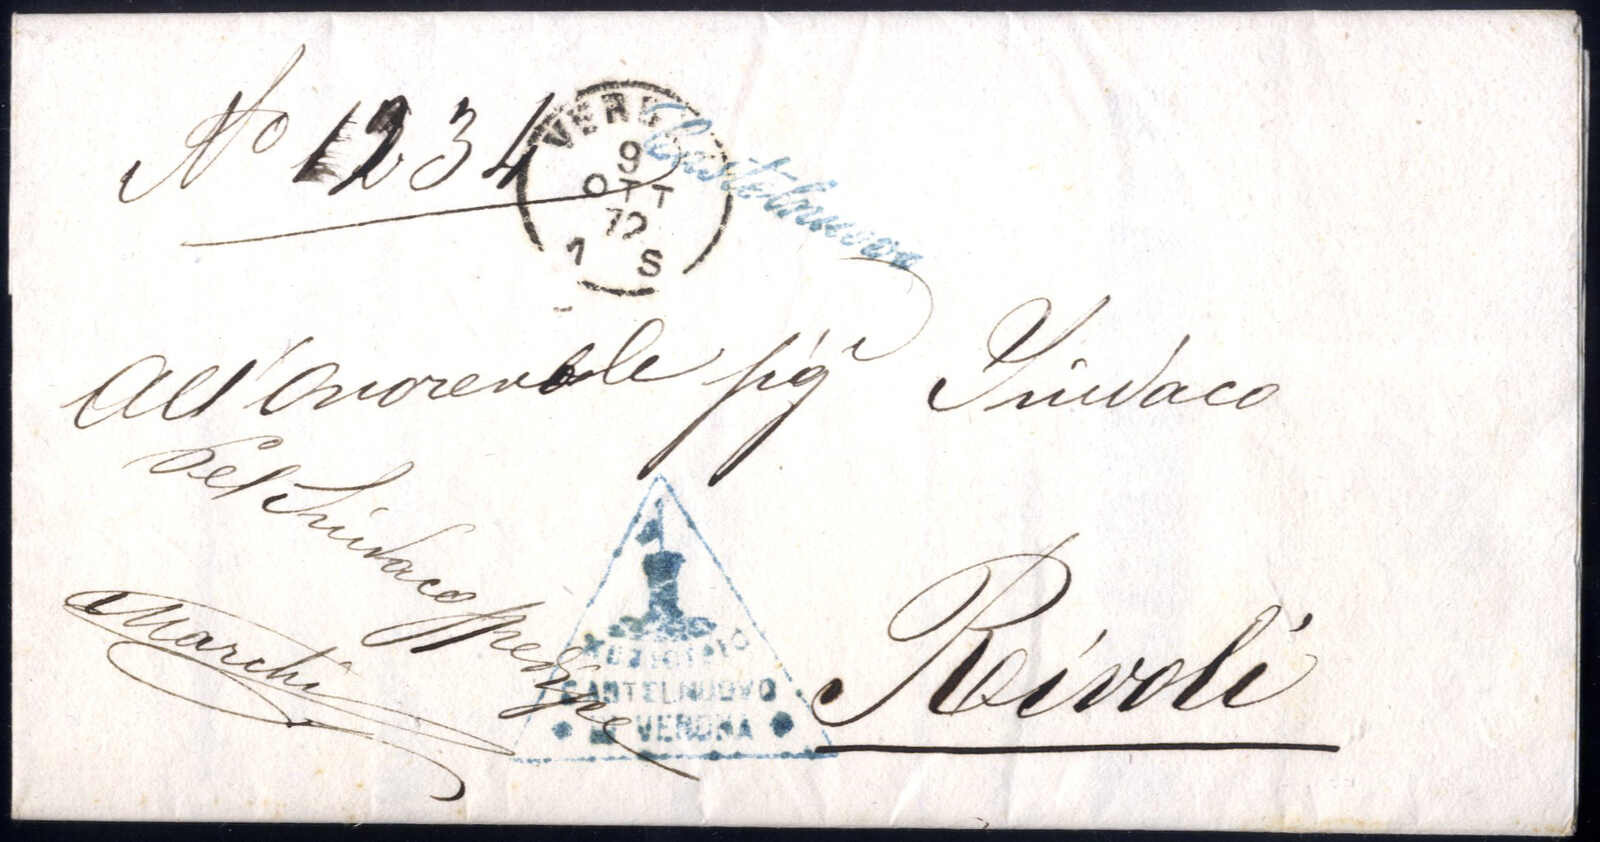 No 1234
VERONA
9
OTT
72
1 S
Castelnuovo
All'Onorevole Sigr Sindaco
Pel Sindaco
Marchi
MUNICIPIO
CASTELNUOVO
DI VERONA
Rivoli